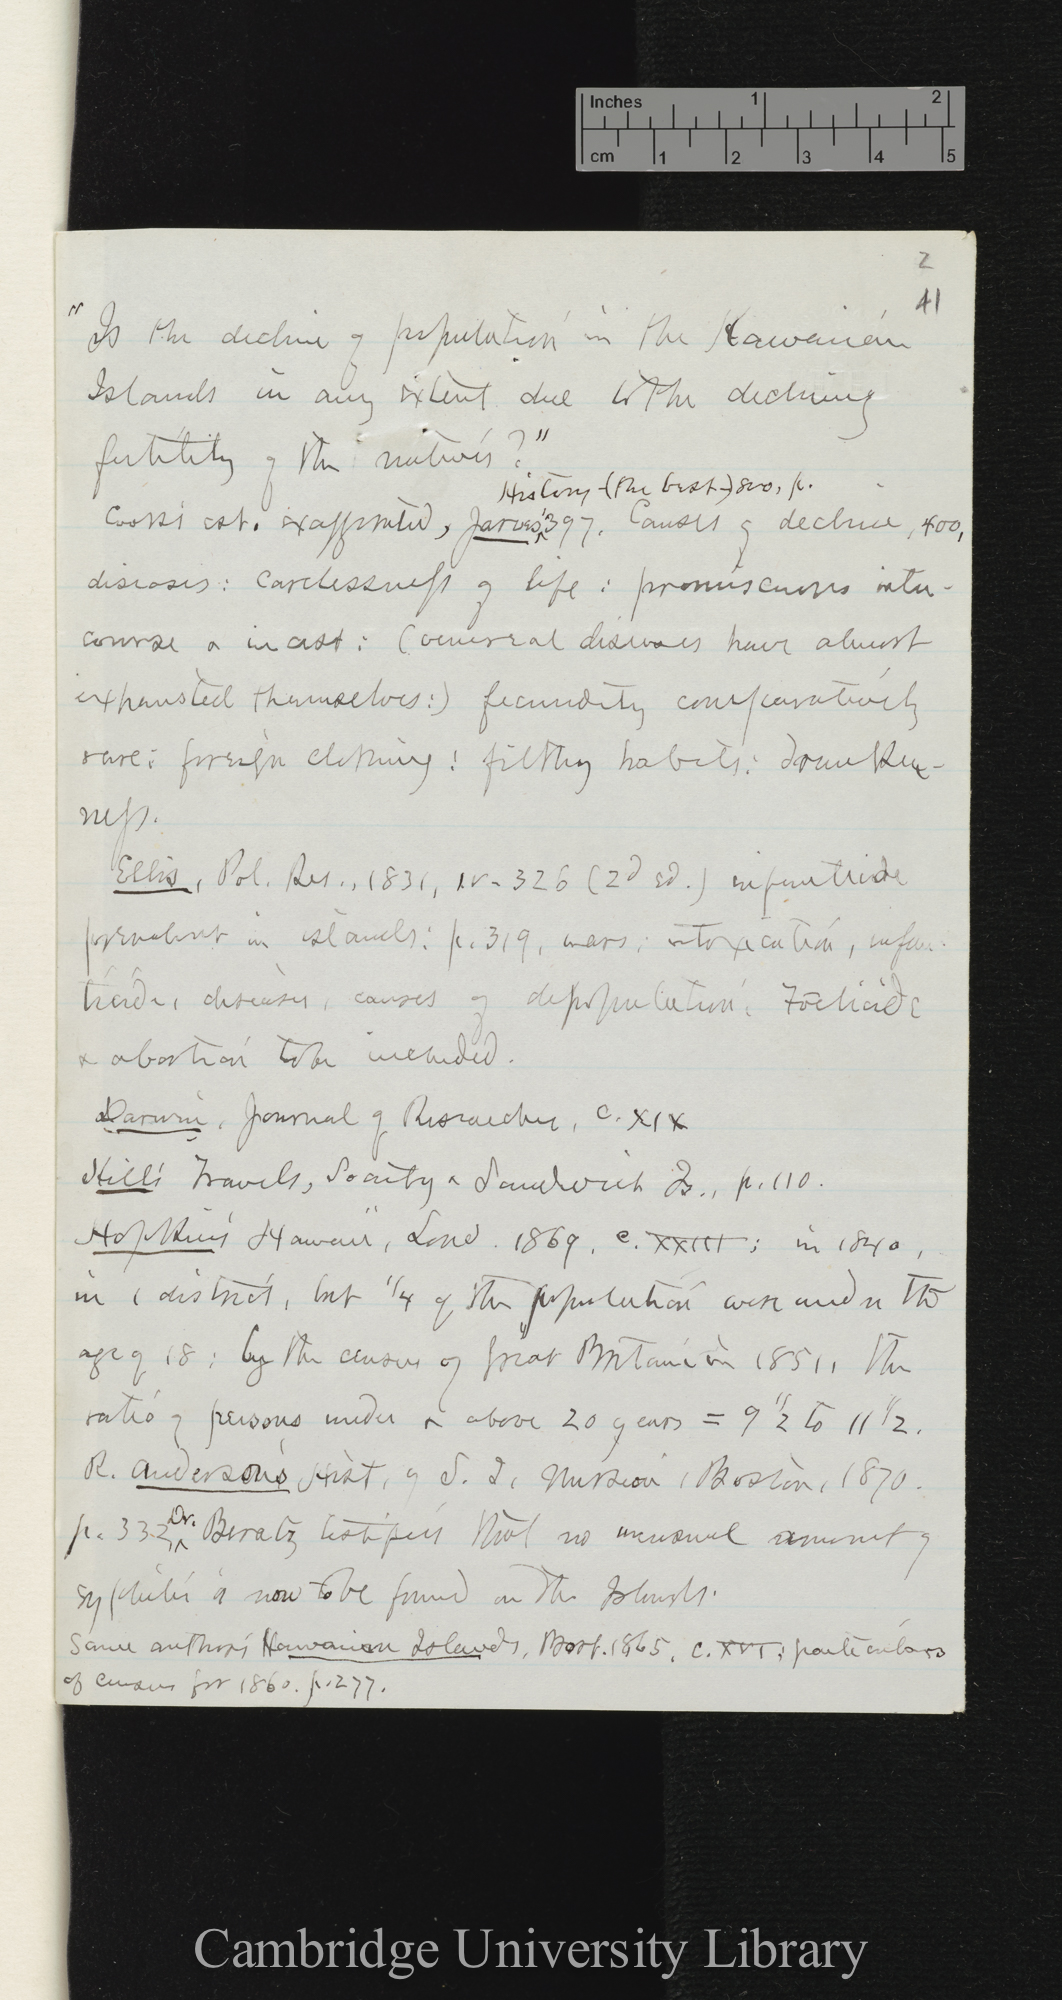 Inches 1 2
cm 1 2 3 4 5
2
41
"Is the decline of population in the Hawaiian
Islands in any extent due to the declining
fertility of the natives?"
History (the best) 8vo, p.
Cook's est. exaggerated, Jarves' 397. Causes of decline, 400,
diseases: carelessness of life: promiscuous inter-
course & incest: (venereal diseases have almost
exhausted themselves:) fecundity comparatively
rare: foreign clothing: filthy habits: drunken-
ness.
Ellis, Pol. Res., 1831, IV. 326 (2d ed.) infanticide
prevalent in islands: p. 319, wars, intoxication, infan-
ticide, diseases, causes of depopulation: Foeticide
& abortion to be included.
Darwin, Journal of Researches, c. XIX
Hill's Travels, Society & Sandwich Is., p. 110.
Hopkins' Hawaii, Lond. 1869, c. XXIII: in 1840,
in 1 district, but 1/4 of the population were under the
age of 18: by the census of Great Britain in 1851, the
ratio of persons under & above 20 years = 9 1/2 to 11 1/2.
R. Anderson's Hist. of S. I. Mission, Boston, 1870.
p. 332, Dr. testifies that no unusual amount of
syphilis is now to be found on the Islands.
Same author's Hawaiian Islands, Bost. 1865, c. XVI; particulars
of census for 1860. p. 277.
Cambridge University Library